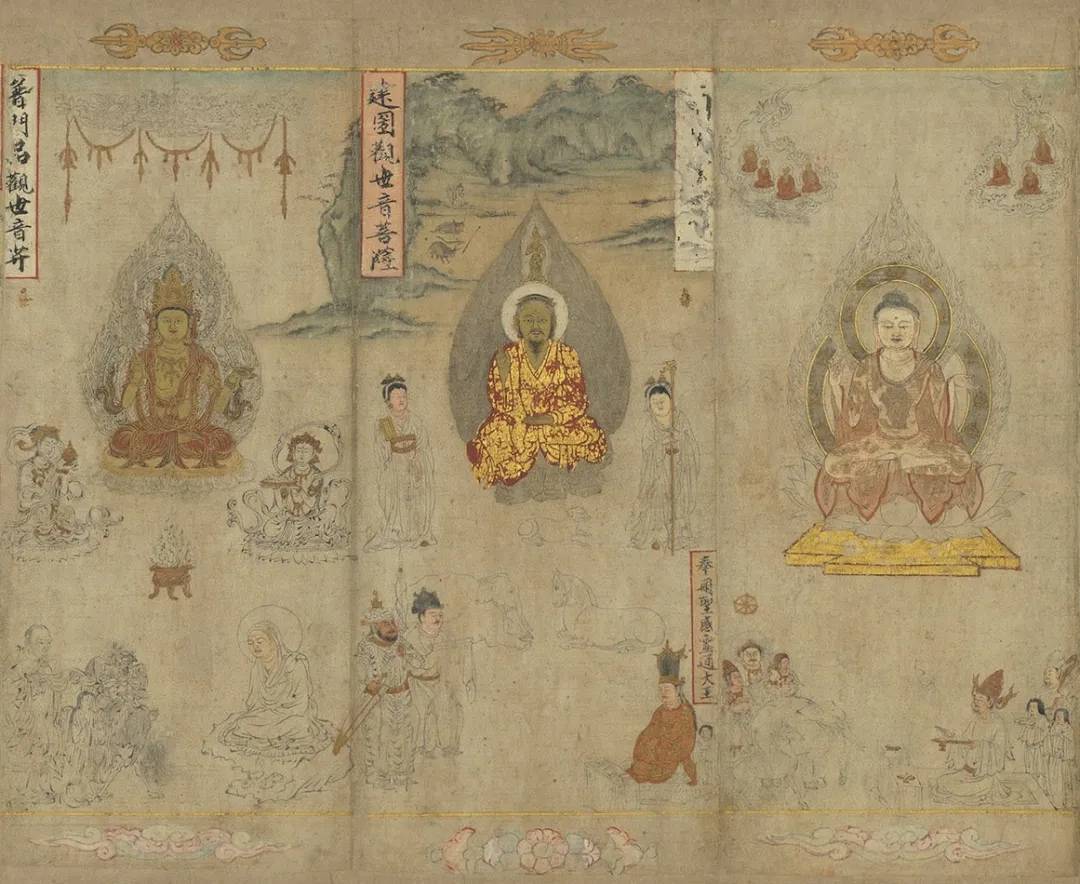 奉冊聖感靈通大王
建國觀世音菩薩
普門品觀世音𦬇